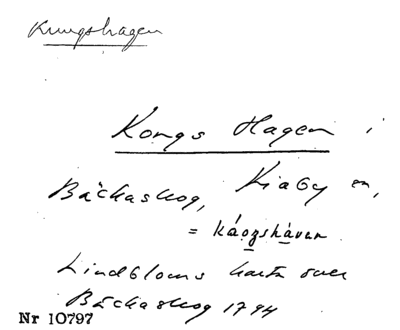 Kungshagen
Kongs Hagen i
Bäckaskog, Kiaby sn,
= káŋshávan
Lindbloms karta över
Bäckaskog 1794
Nr 10797